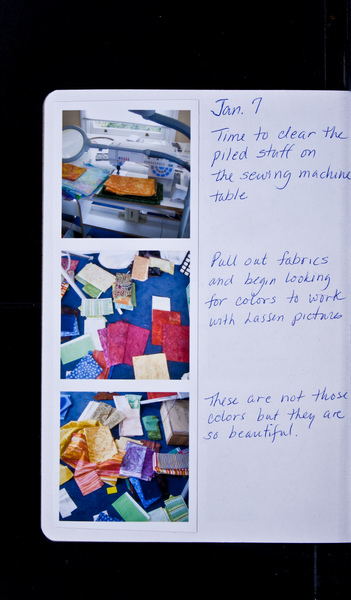 Jan. 7
Time to clear the
piled stuff on
the sewing machine
table
Pull out fabrics
and begin looking
for colors to work
with Lassen pictures
These are not those
colors but they are
so beautiful.